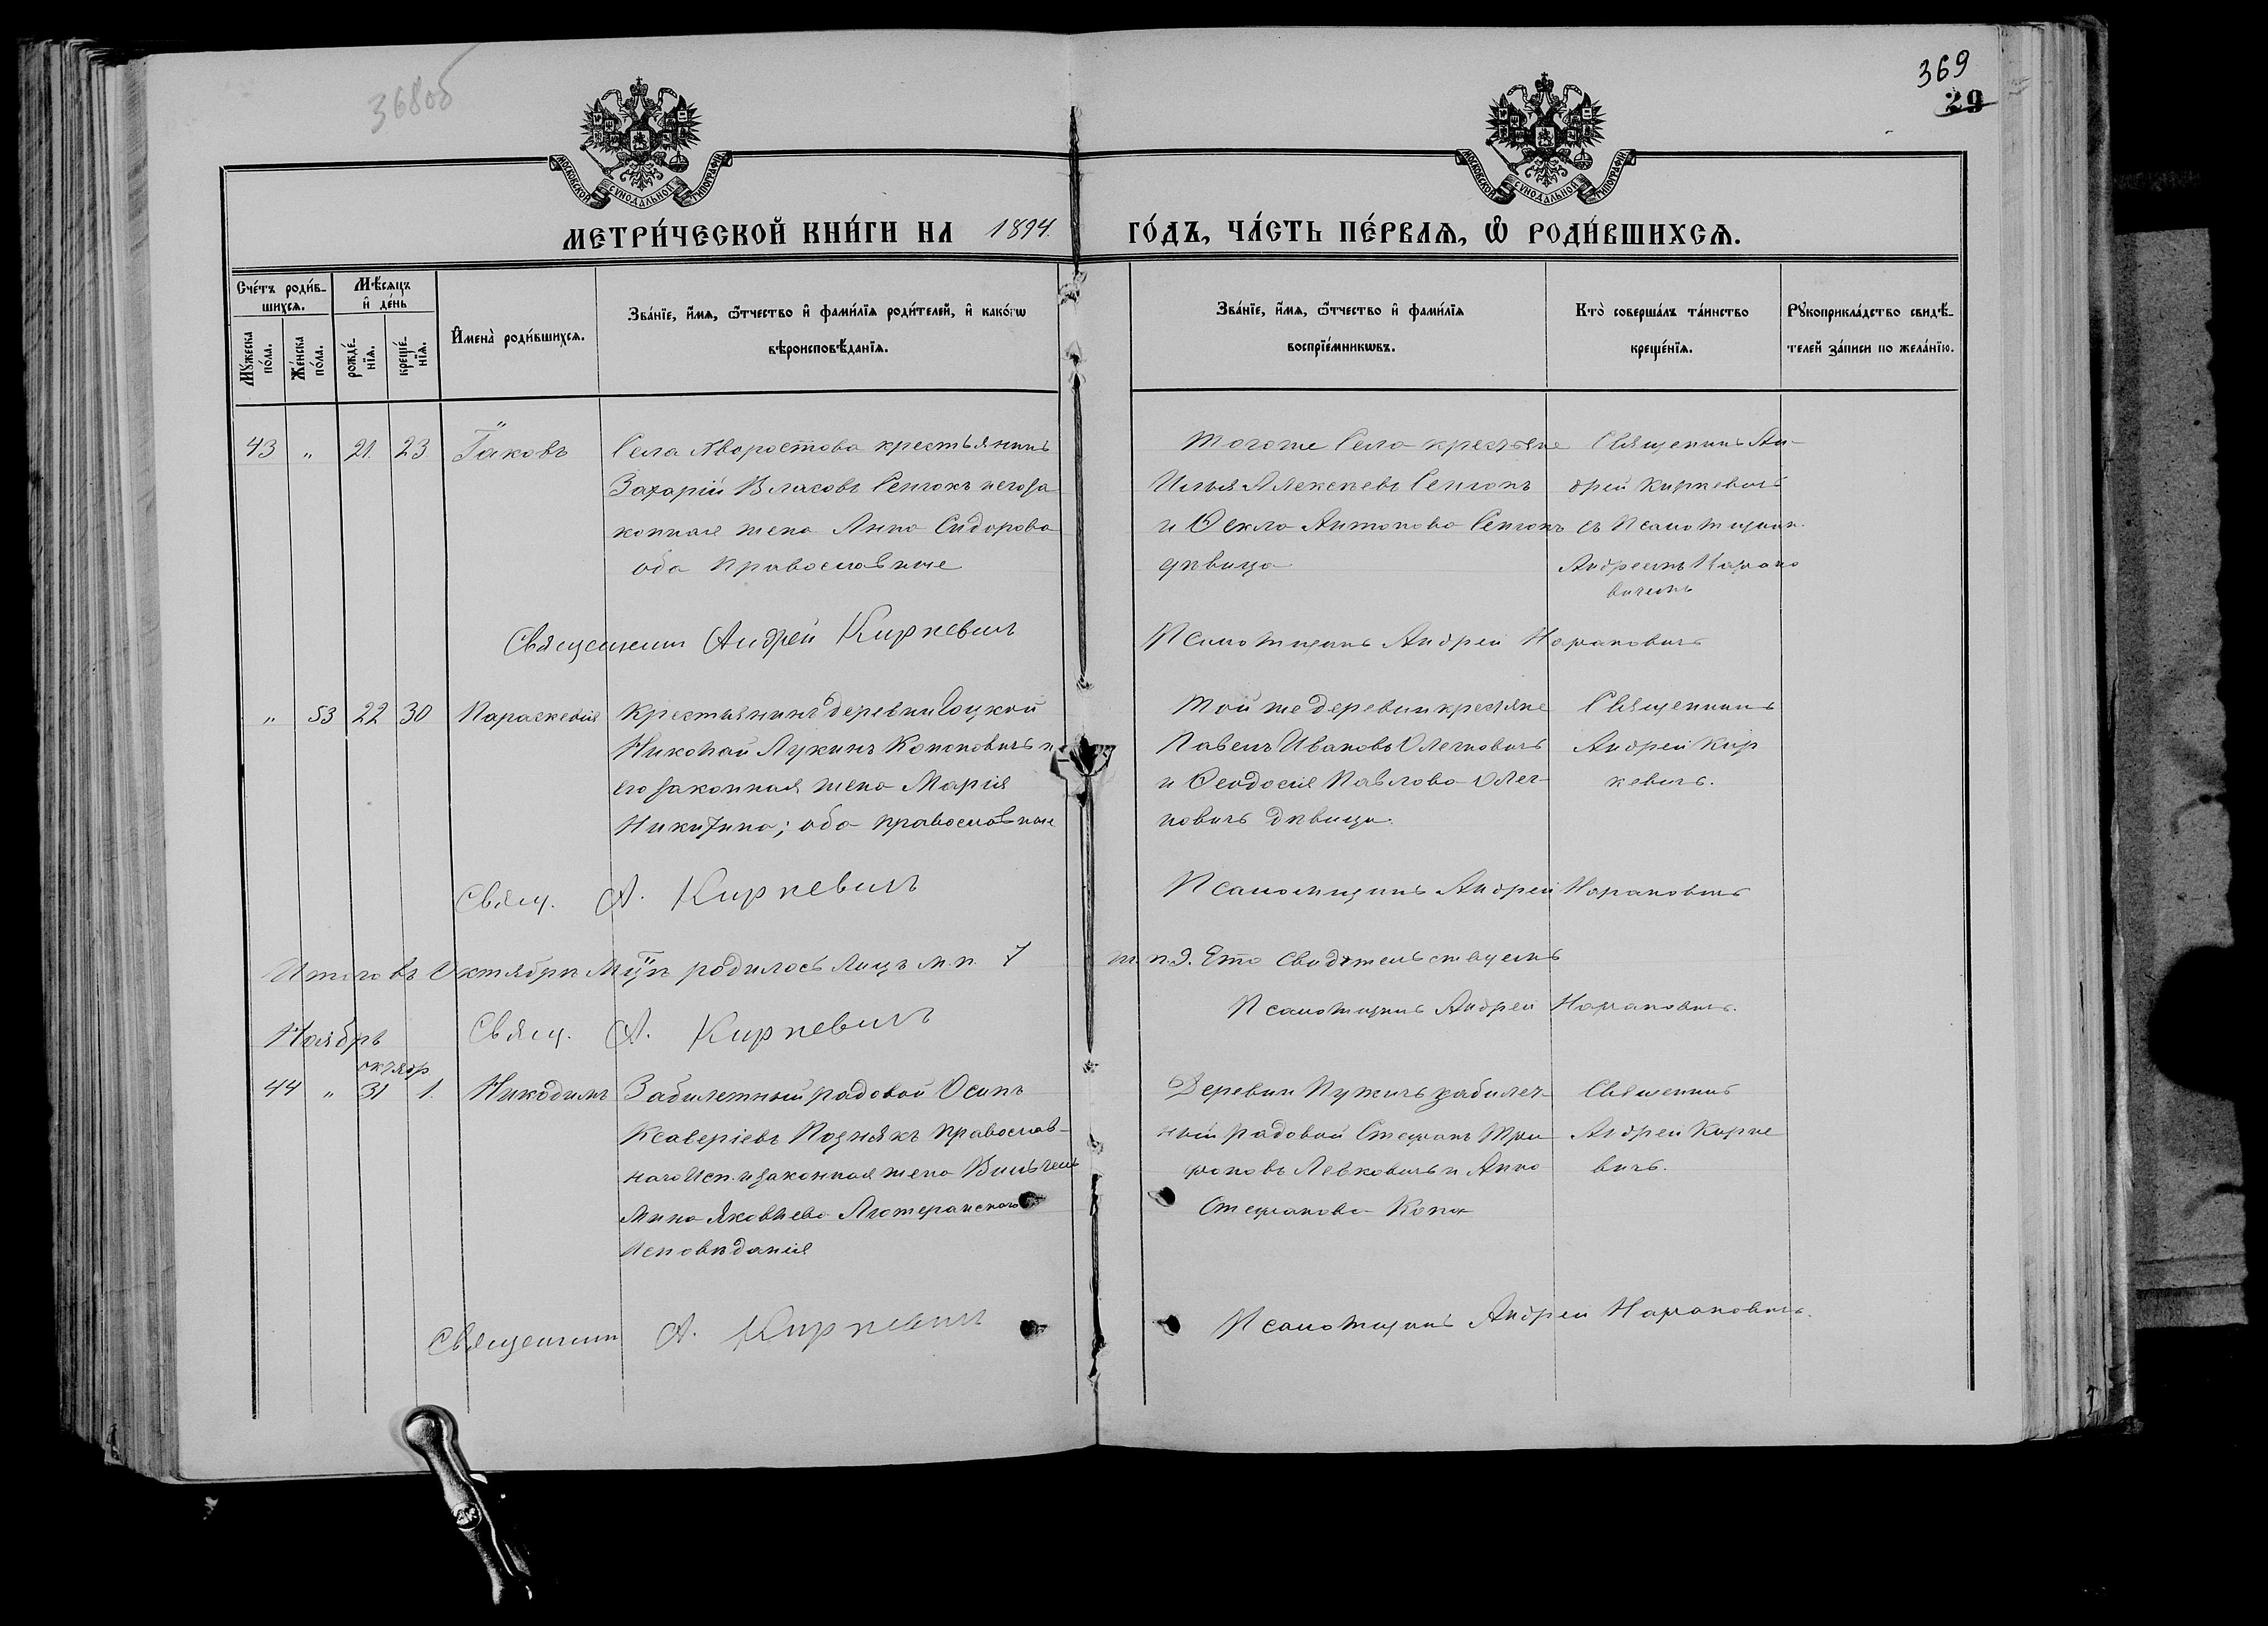 368об
369
29
МОСКОВСКОЙ СѴНОДАЛЬНОЙ ТИПОГРАФІИ
МОСКОВСКОЙ СѴНОДАЛЬНОЙ ТИПОГРАФІИ
МЕТРИ́ЧЕСКОЙ КНИ́ГИ НА 1894. ГО́ДЪ, ЧА́СТЬ ПЕ́РВАѦ, Ѡ҆ РОДИ́ВШИХСѦ.
Сче́тъ роди́вшихсѧ.
Мꙋ́жеска по́ла.
Же́нска по́ла.
Мѣ́сѧцъ и҆ де́нь
рожде́нїѧ.
креще́нїѧ.
И҆мена̀ роди́вшихсѧ.
Зва́нїе, и҆́мѧ, ѻ҆́тчество и҆ фами́лїѧ роди́телей, и҆ како́гѡ
вѣроисповѣ́данїѧ.
Зва́нїе, и҆́мѧ, ѻ҆́тчество и҆ фами́лїѧ
воспрїе́мникѡвъ.
Кто̀ соверша́лъ та́инство
креще́нїѧ.
Рꙋкоприкла́дство свидѣ́-
телей за́писи по жела́нїю.
43 " 21. 23 Іаковъ
Села Хворостова крестьянинъ
Захарій Власовъ Сенюкъ и его за
конная жена Анна Сидорова
оба православные
Того же Села крестьяне
Илья Алексѣевъ Сенюкъ
и Ѳекла Антонова Сенюкъ
дѣвица
Священникъ Ан-
дрей Киркевичъ
съ Псаломщик.
Андреемъ
вичемъ
Священникъ Андрей Киркевичъ
Псаломщикъ Андрей
" 53 22 30 Параскевія
Крестьянинъ деревни
Николай Лукинъ Кононовичъ и
его законная жена Марія
Никитина; оба православные
Той же деревни крестьяне
Павелъ Ивановъ Олехновичъ
и Ѳеодосія Павлова Олех-
новичъ дѣвица.
Священникъ
Андрей Кир
кевичъ.
Свящ. А. Киркевичъ
Псаломщикъ Андрей
Итого въ Октябрѣ М-цѣ родилось лицъ м.п. 7 ж. п. 9. Ето Свидѣтельствуемъ
Свящ. А. Киркевичъ
Псаломщикъ Андрей
Ноябрь
октябр
44 " 31 1. Никодимъ
Забилетный радовой Осипъ
Ксаверіевъ Познякъ православ-
наго Исп. и законная жена Вильгель
мина Яковлева Лютеранскаго
Исповѣданія
Деревни Пужичъ забилет-
ный радовой Стефанъ Три
фоновъ Левковичъ и Анна
Стефанова
Священникъ
Андрей Кирке
вичъ.
Священникъ А. Киркевичъ
Псаломщикъ Андрей